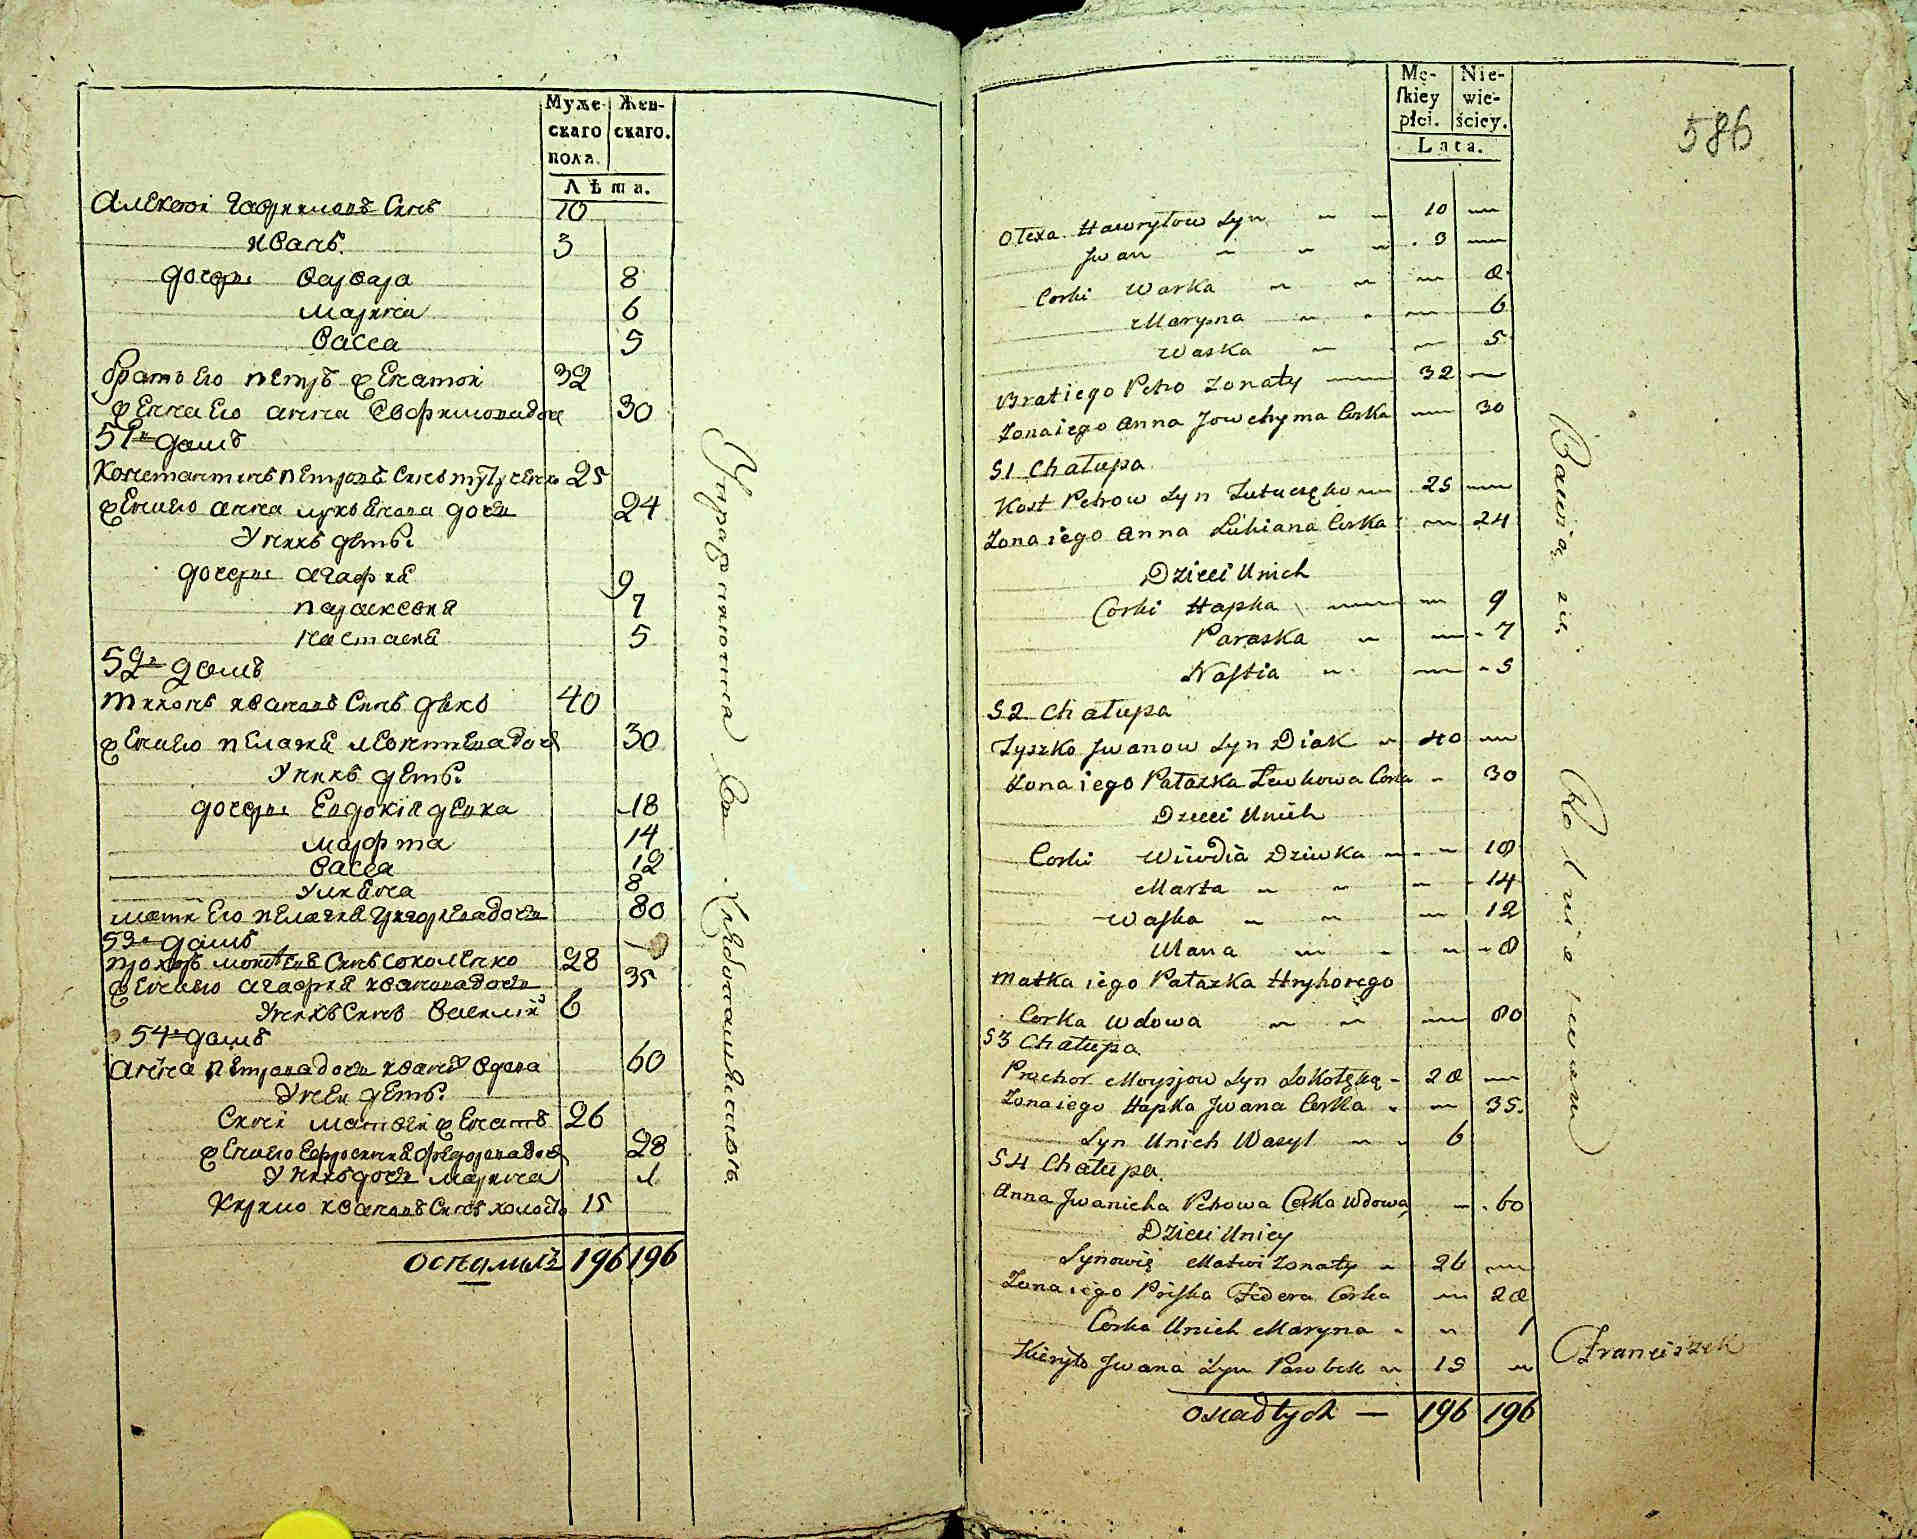 Муже-
скаго
пола.
Жен-
скаго.
Лѣта.
Алексей Гаврилловъ Сынъ 10
Иванъ 3
дочери Варвара 8
Марина 6
Васса 5
братъ Его Петръ женатой 32
жена Его Анна Евфимова дочь 30
51й домъ
Константинъ Петровъ Сынъ 25
жена Его Анна Лукьянова дочь 24
У нихъ дети
дочери Агафия 9
Параскевия 7
Настасия 5
52й домъ
Тихонъ Ивановъ Сынъ Дякъ 40
жена Его Пелагия Леонтиева дочь 30
У нихъ дети
дочери Евдокия девка 18
Марфта 14
Васса 12
Улияна 8
мати Его Пелагия Григориева дочь 80
53й домъ
Прохоръ Моисеевъ Сынъ Соколенко 28
жена Его Агафия Иванова дочь 35
У нихъ Сынъ Василий 6
54й домъ
Анна Петрова дочь вдова 60
У неи дети
Сыни Матвеи женатъ 26
жена Его Ефросиния Федорова дочь 28
У нихъ дочь Марина 1
Кирило Ивановъ Сынъ холостъ 15
Осталыхъ 196 196
Mę-
skiey
płci.
Nie-
wie-
ściey.
Lata.
586
Olexa Hawryłow Syn 10
Jwan 3
Corki Warka 8
Maryna 6
Waska 5
Brat iego Petro Zonaty 32
Zona iego Anna Jowchyma Corka 30
51 Chałupa
Kost Petrow Syn 25
Zona iego Anna Lukiana Corka 24
Dzieci Unich
Corki Hapka 9
Paraska 7
Nastia 5
52 Chałupa
Tyszko Jwanow Syn Diak 40
Zona iego Pałazka Lewkowa Corka 30
Dzieci Unich
Corki Wiwdia Dziwka 18
Marta 14
Waska 12
Ulana 8
Matka iego Pałazka Hryhorego
Corka Wdowa 80
53 Chałupa
Prochor Moysjow Syn 28
Zona iego Hapka Jwana Corka 35
Syn Unich Wasyl 6
54 Chałupa
Anna Jwanicha Petrowa Corka Wdowa 60
Dzieci Uniey
Synowie Matwi Zonaty 26
Zona iego Pryska Fedora Corka 28
Corka Unich Maryna 1
Kieryło Jwana Syn Parobek 15
Osiadłych — 196 196
Franciszek